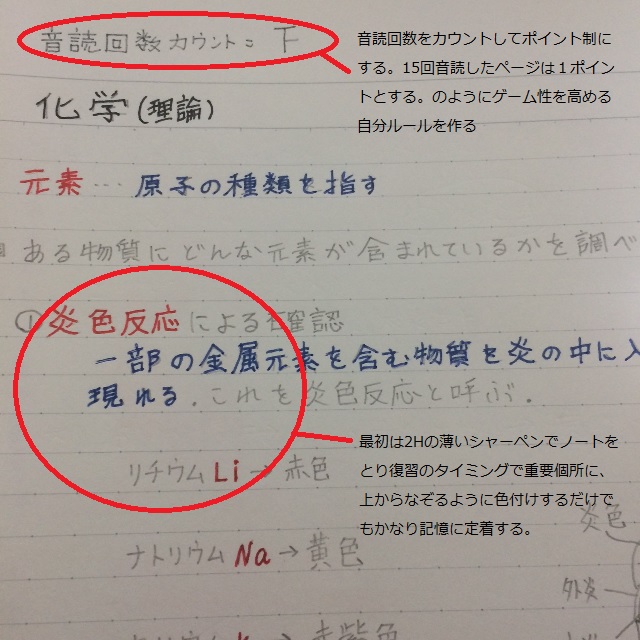 音読回数カウント= 下
音読回数をカウントしてポイント制に
する。15回音読したページは１ポイン
トとする。のようにゲーム性を高める
自分ルールを作る
化学(理論)
元素… 原子の種類を指す
ある物質にどんな元素が含まれているかを調べ
①炎色反応による確認
一部の金属元素を含む物質を炎の中に入
現れる.これを炎色反応と呼ぶ.
最初は2Hの薄いシャーペンでノートを
とり復習のタイミングで重要個所に、
上からなぞるように色付けするだけで
もかなり記憶に定着する。
リチウムLi→赤色
ナトリウムNa→黄色
炎色
外炎
赤紫色